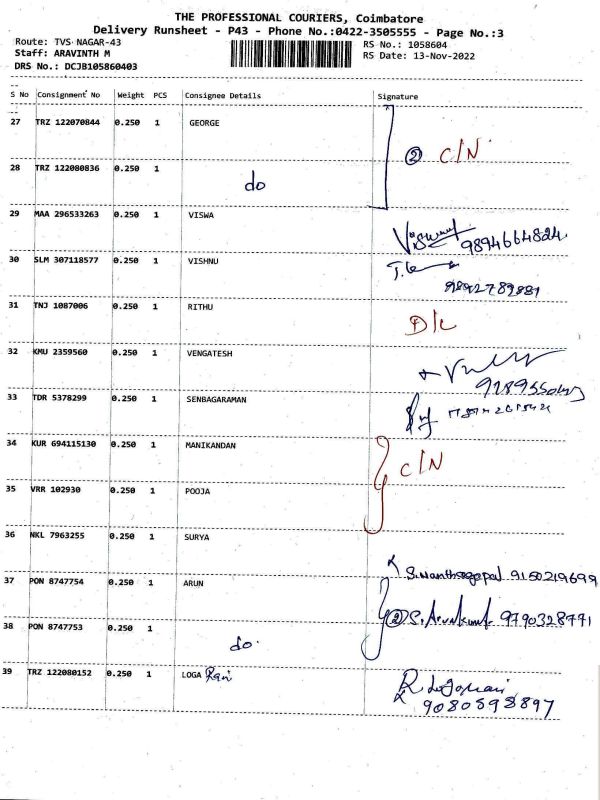 THE PROFESSIONAL COURIERS, Coimbatore
Delivery Runsheet - P43 - Phone No.:0422-3505555 - Page No.:3
Route: TVS NAGAR-43
RS No.: 1058604
Staff: ARAVINTH M
RS Date: 13-Nov-2022
DRS No.: DCJB105860403
S No Consignment No Weight PCS Consignee Details Signature
27 TRZ 122070844 0.250 1 GEORGE
② C/N
28 TRZ 122080836 0.250 1
do
29 MAA 296533263 0.250 1 VISWA
9894664824
30 SLM 307118577 0.250 1 VISHNU
31 TNJ 1087006 0.250 1 RITHU
D/L
32 KMU 2359560 0.250 1 VENGATESH
33 TDR 5378299 0.250 1 SENBAGARAMAN
34 KUR 694115130 0.250 1 MANIKANDAN
C/N
35 VRR 102930 0.250 1 POOJA
36 NKL 7963255 0.250 1 SURYA
9150219699
37 PON 8747754 0.250 1 ARUN
② 9790328771
38 PON 8747753 0.250 1
do
39 TRZ 122080152 0.250 1 LOGA Rani
9080598897